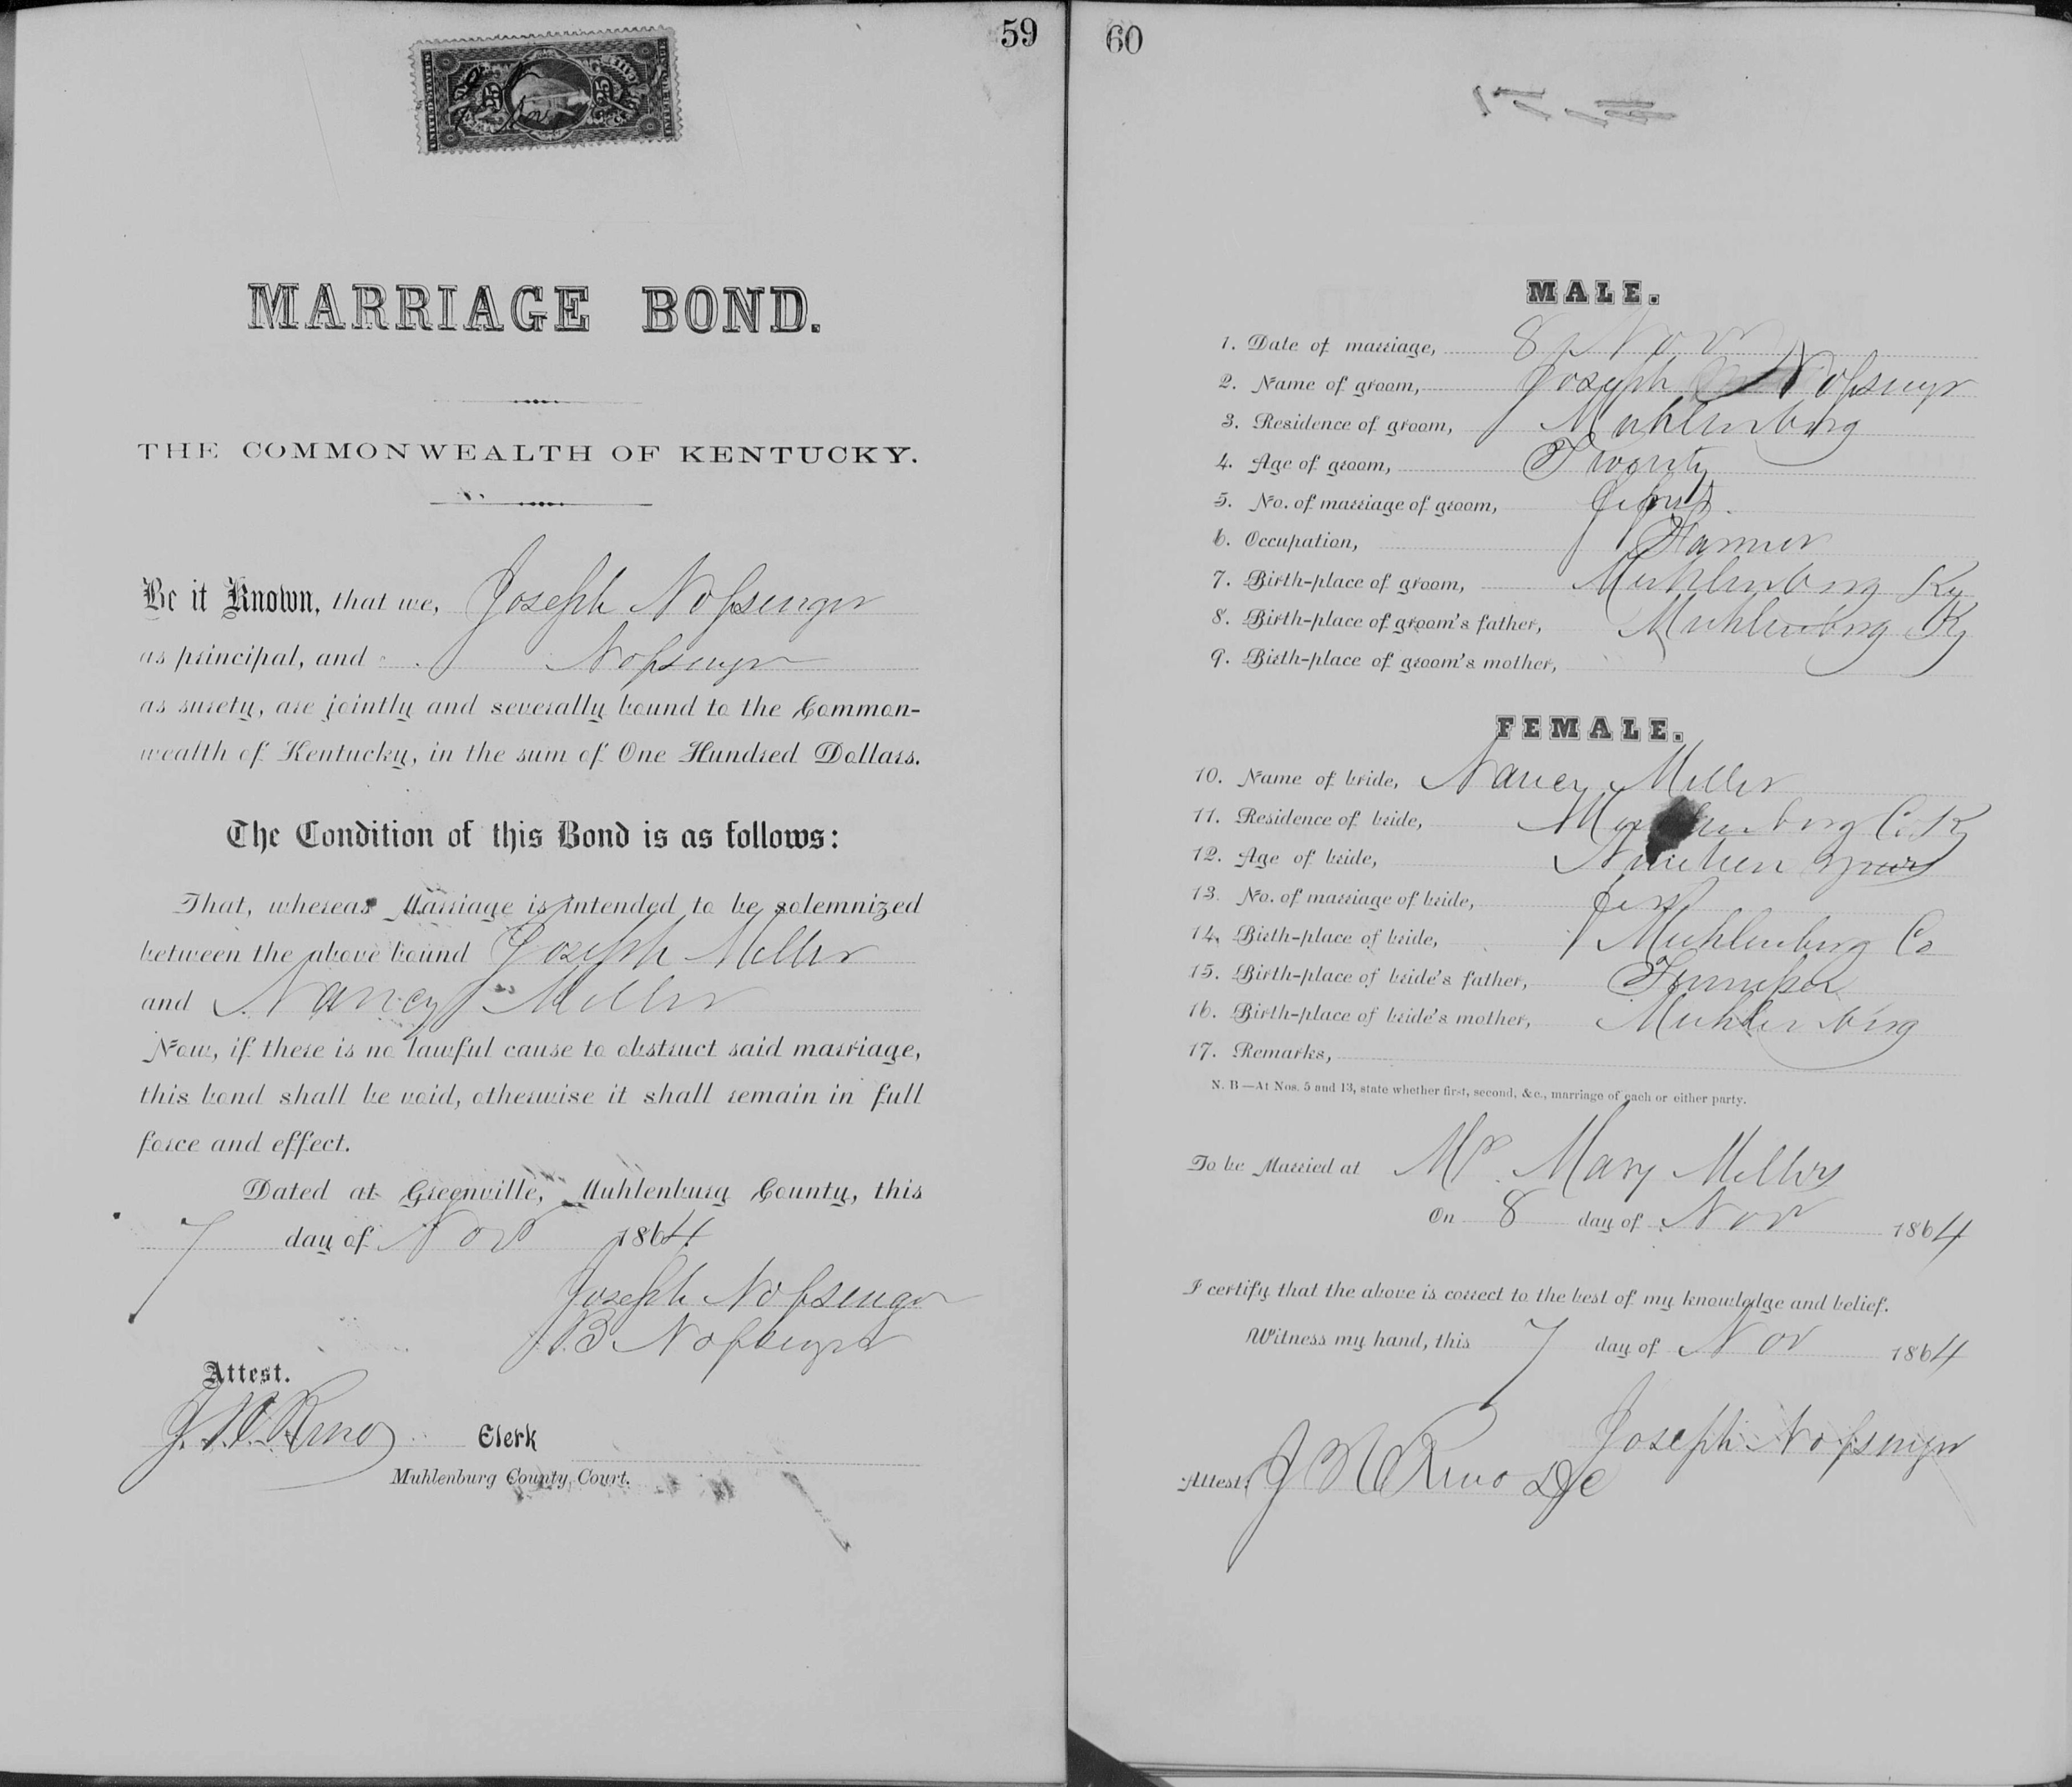 59
UNITED STATES
25
25
MARRIAGE BOND.
THE COMMONWEALTH OF KENTUCKY.
Be it Known, that we, Joseph Nofsinger
as principal, and Nofsinger
as surety, are jointly and severally bound to the Common-
wealth of Kentucky, in the sum of One Hundred Dollars.
The Condition of this Bond is as follows:
That, whereas Marriage is intended to be solemnized
between the above bound Joseph Miller
and Nancy Miller
Now, if there is no lawful cause to obstruct said marriage,
this bond shall be void, otherwise it shall remain in full
force and effect.
Dated at Greenville, Muhlenburg County, this
7 day of Nov 1864
Joseph Nofsinger
J. B Nofsinger
Attest.
J. W. Reno Clerk
Muhlenburg County Court.
60
MALE.
1. Date of marriage, 8 Nov
2. Name of groom, Joseph Nofsinger
3. Residence of groom, Muhlenburg
4. Age of groom, Twenty
5. No. of marriage of groom, first.
6. Occupation, Farmer
7. Birth-place of groom, Muhlenburg Ky
8. Birth-place of groom's father, Muhlenburg Ky
9. Birth-place of groom's mother,
FEMALE.
10. Name of bride, Nancy Miller
11. Residence of bride, Muhlenburg Co. Ky
12. Age of bride, Nineteen years
13. No. of marriage of bride, first
14. Birth-place of bride, Muhlenburg Co
15. Birth-place of bride's father,
16. Birth-place of bride's mother, Muhlenburg
17. Remarks,
N. B—At Nos. 5 and 13, state whether first, second, &c., marriage of each or either party.
To be Married at Mrs. Mary Millers
On 8 day of Nov 1864
I certify that the above is correct to the best of my knowledge and belief.
Witness my hand, this 7 day of Nov 1864
Joseph Nofsinger
Attest: J W Reno DC